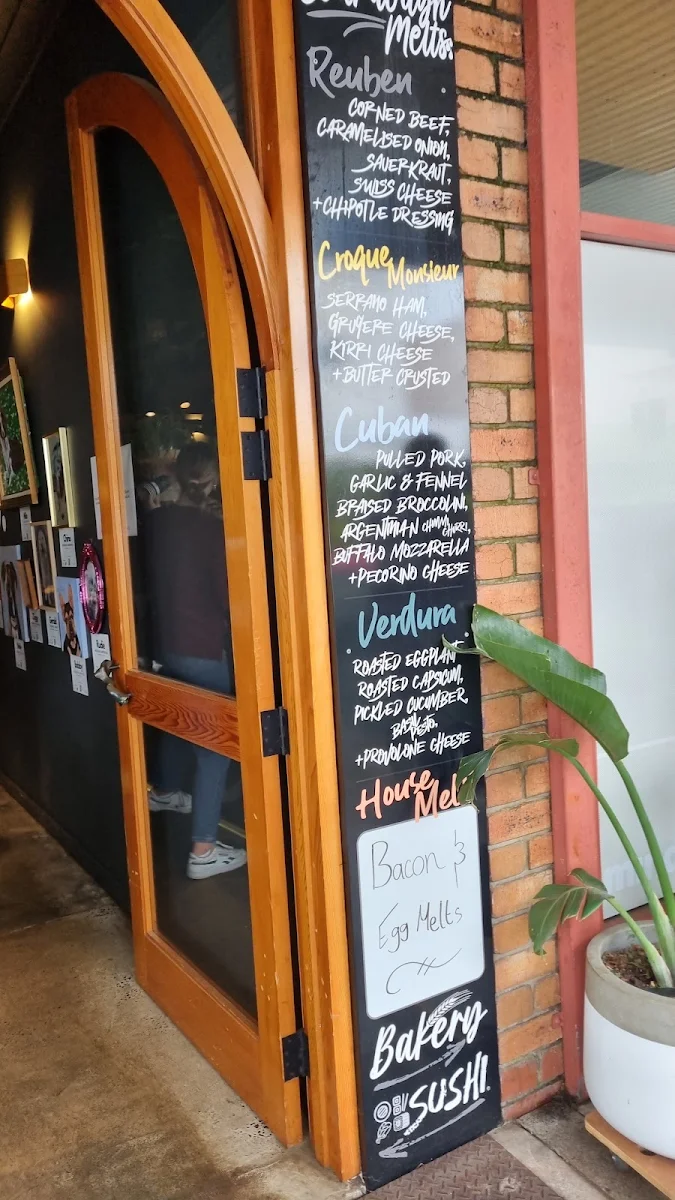 Melts:
Reuben
CORNED BEEF,
CARAMELISED ONION,
SAUERKRAUT,
SWISS CHEESE
+CHIPOTLE DRESSING
Croque Monsieur
SERRANO HAM,
GRUYERE CHEESE,
KIRRI CHEESE
+BUTTER CRUSTED
Cuban
PULLED PORK,
GARLIC & FENNEL
BRAISED BROCCOLINI,
ARGENTINIAN CHIMI CHURRI,
BUFFALO MOZZARELLA
+PECORINO CHEESE
Verdura
ROASTED EGGPLANT
ROASTED CAPSICUM,
PICKLED CUCUMBER,
BASIL PESTO,
+PROVOLONE CHEESE
House Melt
Bacon &
Egg Melts
Bakery
SUSHI